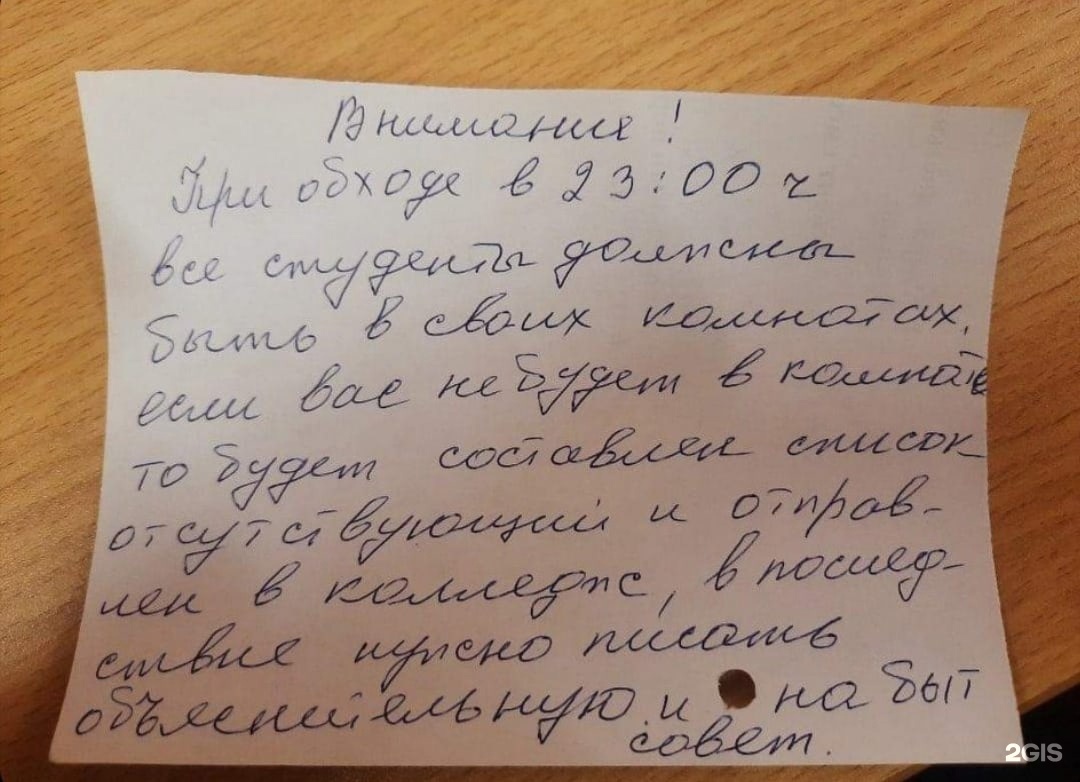 Внимание!
При обходе в 23:00 ч
все студенты должны
быть в своих комнатах,
если вас не будет в комнате
то будет составлен список
отсутствующий и отправ-
лен в колледж, в послед-
ствие нужно писать
объяснительную и на быт
совет.
2GIS